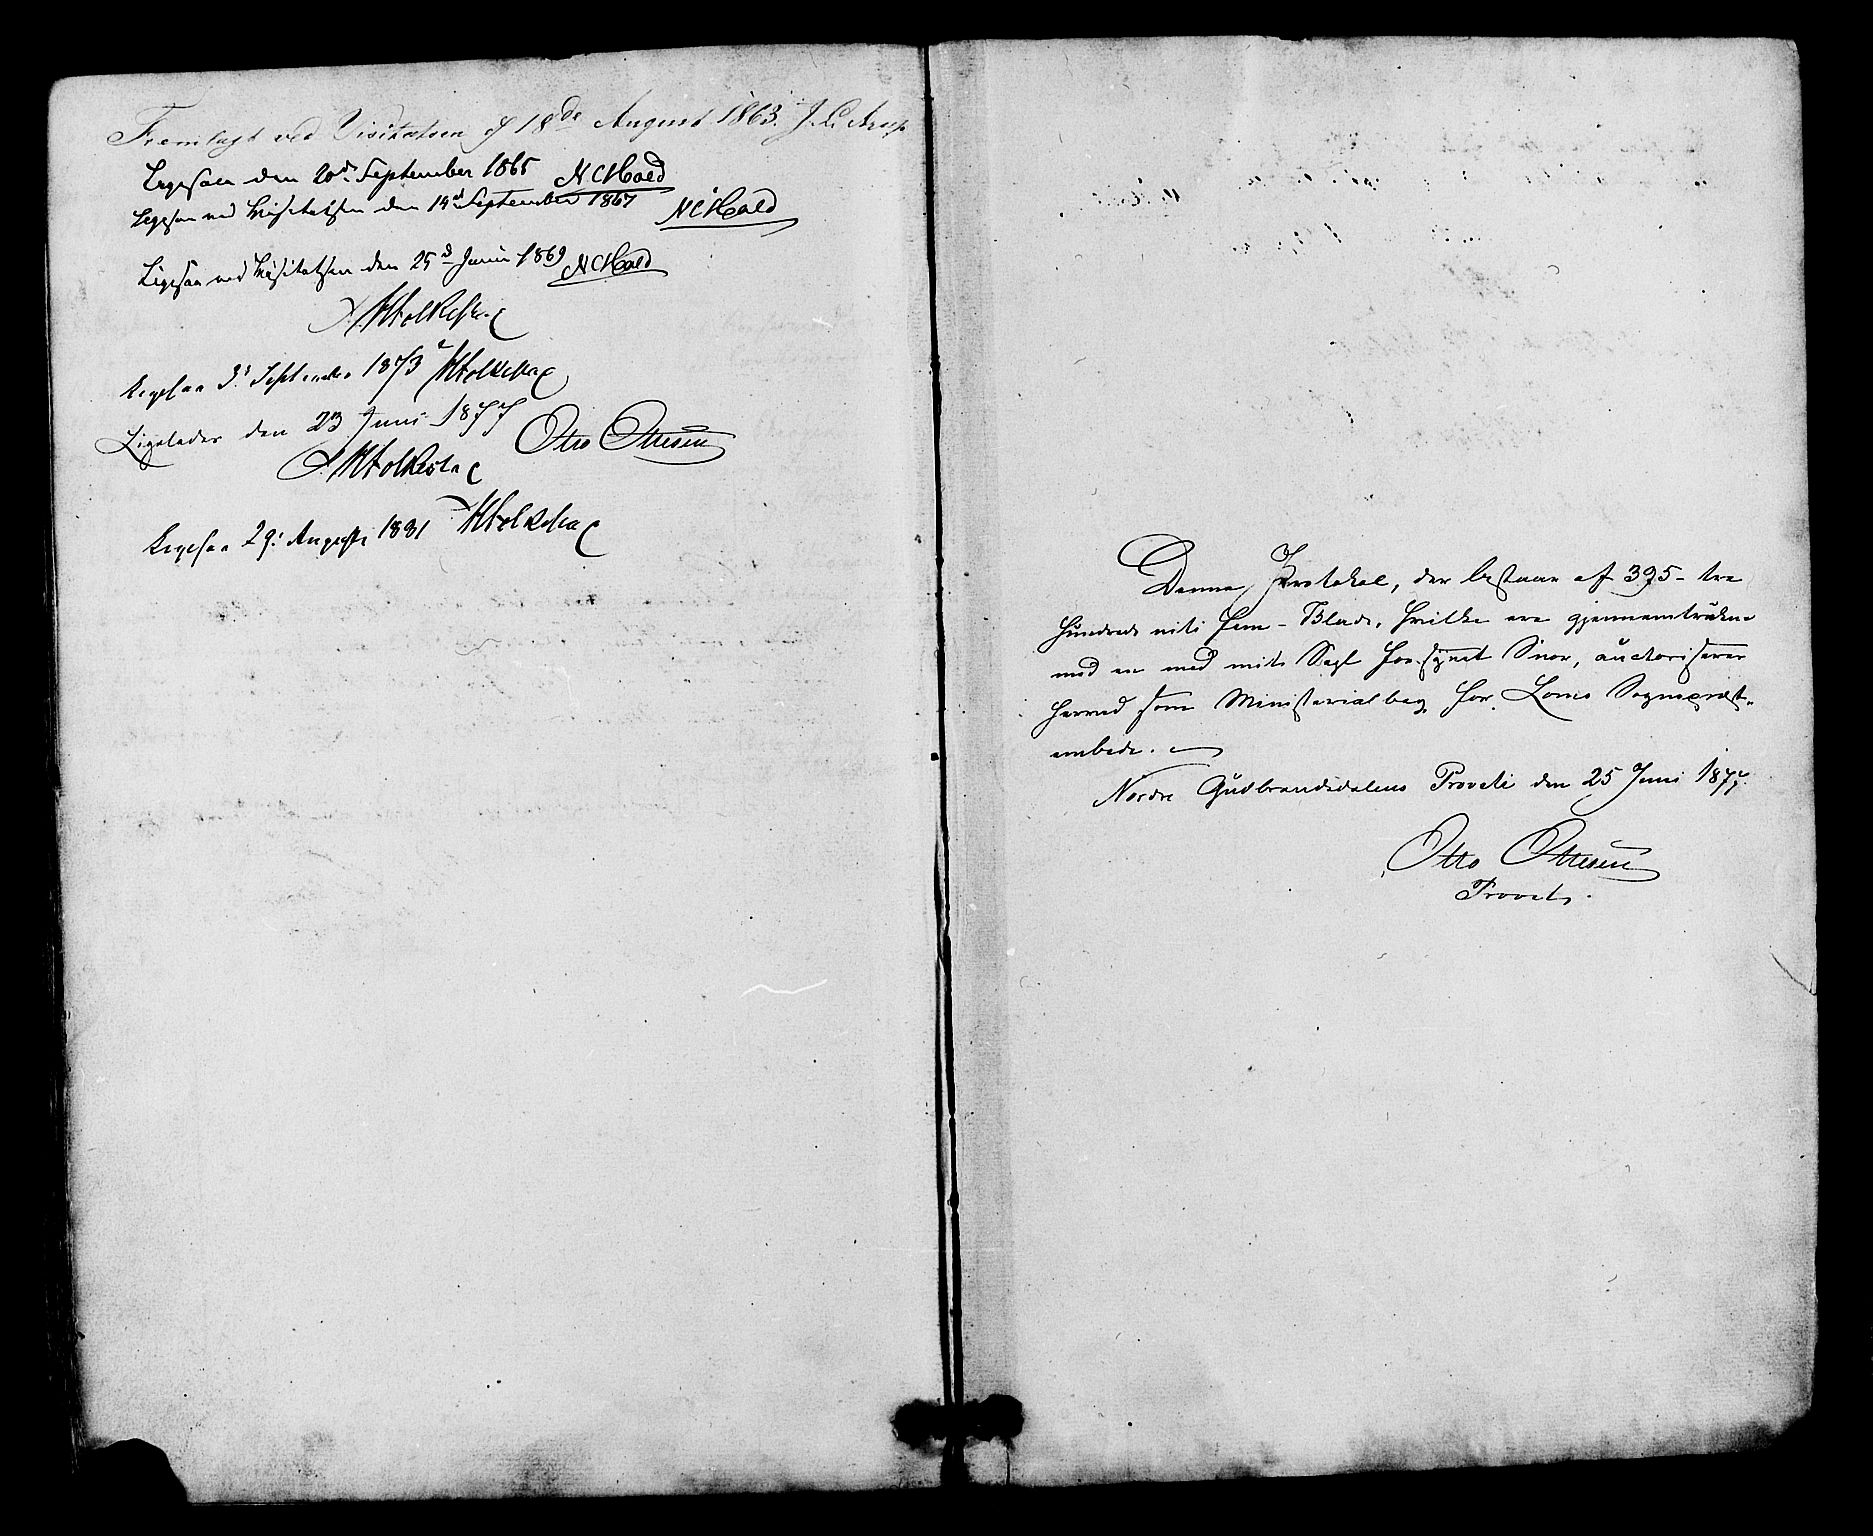 Fremlagt ved Visitatsen d 18de August 1863. J. L. Arup
Ligesaa den 20de September 1865 NCHald
Ligesaa ved Visitatsen den 14d September 1867 NCHald
Ligesaa ved Visitatsen den 25d Junii 1869 NCHald
HHolkestad
Ligesaa 3' September 1873 HHolkestad
Ligeledes den 23 Juni 1877 Otto Ottesen
HHolkestad
Ligesaa 29' August 1881 HHolkestad
Denne Protokol, der bestaar af 395 - tre
hundrede niti fem - Blade, hvilke ere gjennemtrukne
med en med mit Segl forsynet Snor, auctoriseres
herved som Ministerialbog for Loms Sognepræst-
embede.
Nordre Gudbrandsdalens Provsti den 25 Juni 1877.
Otto Ottesen
Provst.